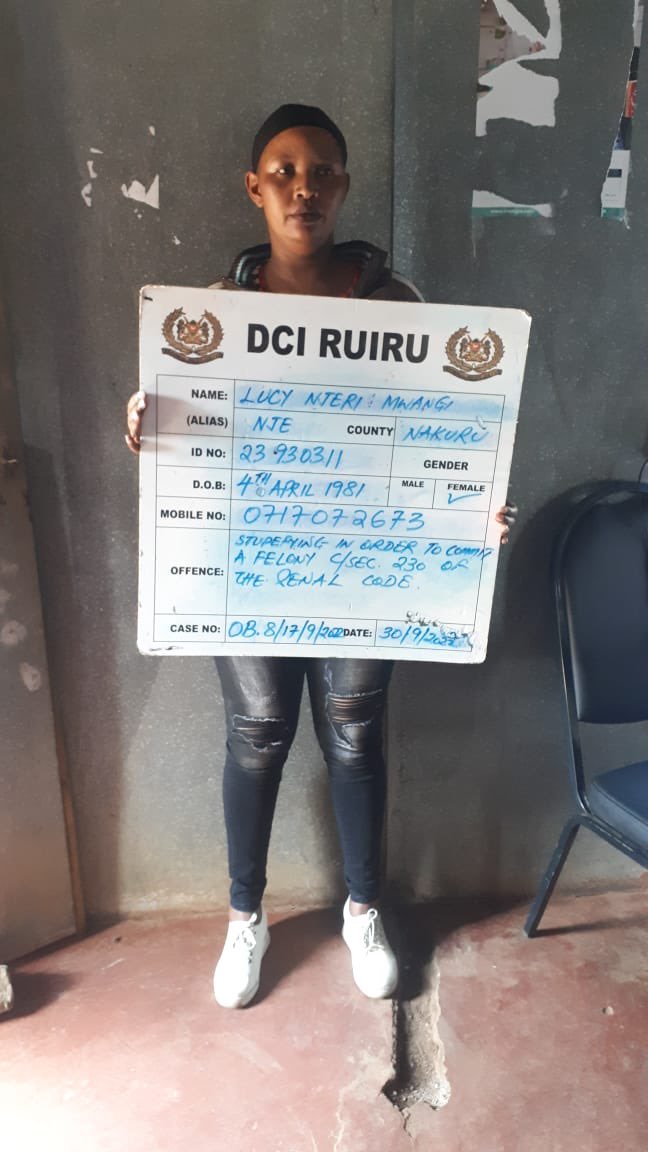 DCI RUIRU
NAME: LUCY NJERI MWANGI
(ALIAS) NJE COUNTY NAKURU
ID NO: 23930311 GENDER
D.O.B: 4TH APRIL 1981 MALE FEMALE ✓
MOBILE NO: 0717072673
STUPEFYING IN ORDER TO COMMIT
OFFENCE: A FELONY C/SEC. 230 OF
THE PENAL CODE.
CASE NO: OB. 8/17/9/2022 DATE: 30/9/2022